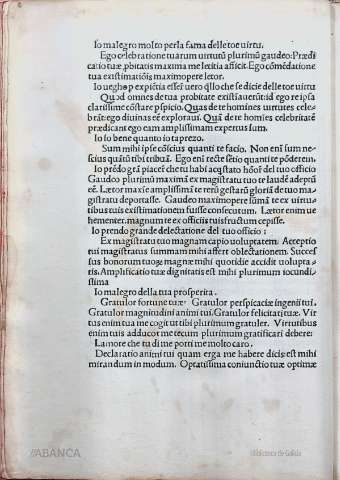 Io malegro molto per la fama delle toe uirtu.
Ego celebratione tuarum uirtutū plurimū gaudeo: Prædi
catio tuæ ꝓbitatis maxima me letitia afficit. Ego cōmēdatione
tua existimatiōis maximopere letor.
Io uegho ꝑ expiētia esser uero qllo che se dicie delle toe uirtu
Quod omnes de tua probitate existīauerūt: id ego re ipsa
clatissime cōstare ꝑspicio. Quas de te homines uirtutes cele-
brāt: ego diuinas eē exploraui. Quā de te homīes celebritatē
prædicant ego eam amplissimam expertus sum.
Io so bene quanto io ta prezo.
Sum mihi ipse cōscius quanti te facio. Non enī sum ne
scius quātū tibi tribuā. Ego enī recte sētio quanti te pōderem.
Io prēdo grā piacer che tu habi acq̄stato hōor del tuo officio
Gaudeo plurimū maximā ex magistratu tuo te laudē adeptū
eē. Lætor maxīe amplissimā te rerū gestarū gloriā de tuo ma
gistratu deportasse. Gaudeo maximopere sūmā te ex uirtu
tibus tuis existimationem fuisse consecutum. Lætor enim ue
hementer. magnum te ex officiis tuis fructum cepisse.
Io prendo grande delectatione del tuo officio:
Ex magistratu tuo magnam capio uoluptatem. Acceptio
tui magistratus summam mihi affert oblectationem. Succes
sus bonorum tuoꝝ magnæ mihi quotidie accidit uolupta
tis. Amplificatio tuæ dignitatis est mihi plurimum iocundi
ssima
Io malegro della tua prosperita.
Gratulor fortunæ tuæ: Gratulor perspicaciæ ingenii tui.
Gratulor magnitudini animi tui. Gratulor felicitati tuæ. Vir
tus enim tua me cogit ut tibi plurimum gratuler. Virtutibus
enim tuis adducor me tecum plurimum gratificari debere:
Lamore che tu di me porti me molto caro.
Declaratio animi tui quam erga me habere dicis est mihi
mirandum in modum. Optatissima coniunctio tuæ optimæ
ABANCA
Biblioteca de Galicia